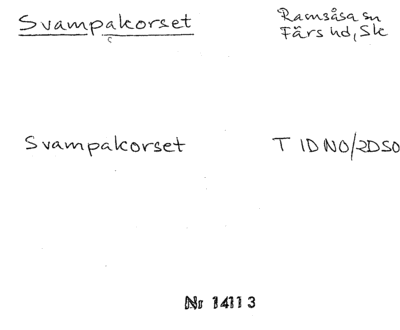 Svampakorset
Ramsåsa sn
Färs hd, Sk
Svampakorset
T IDNO/2DSO
Nr 14113